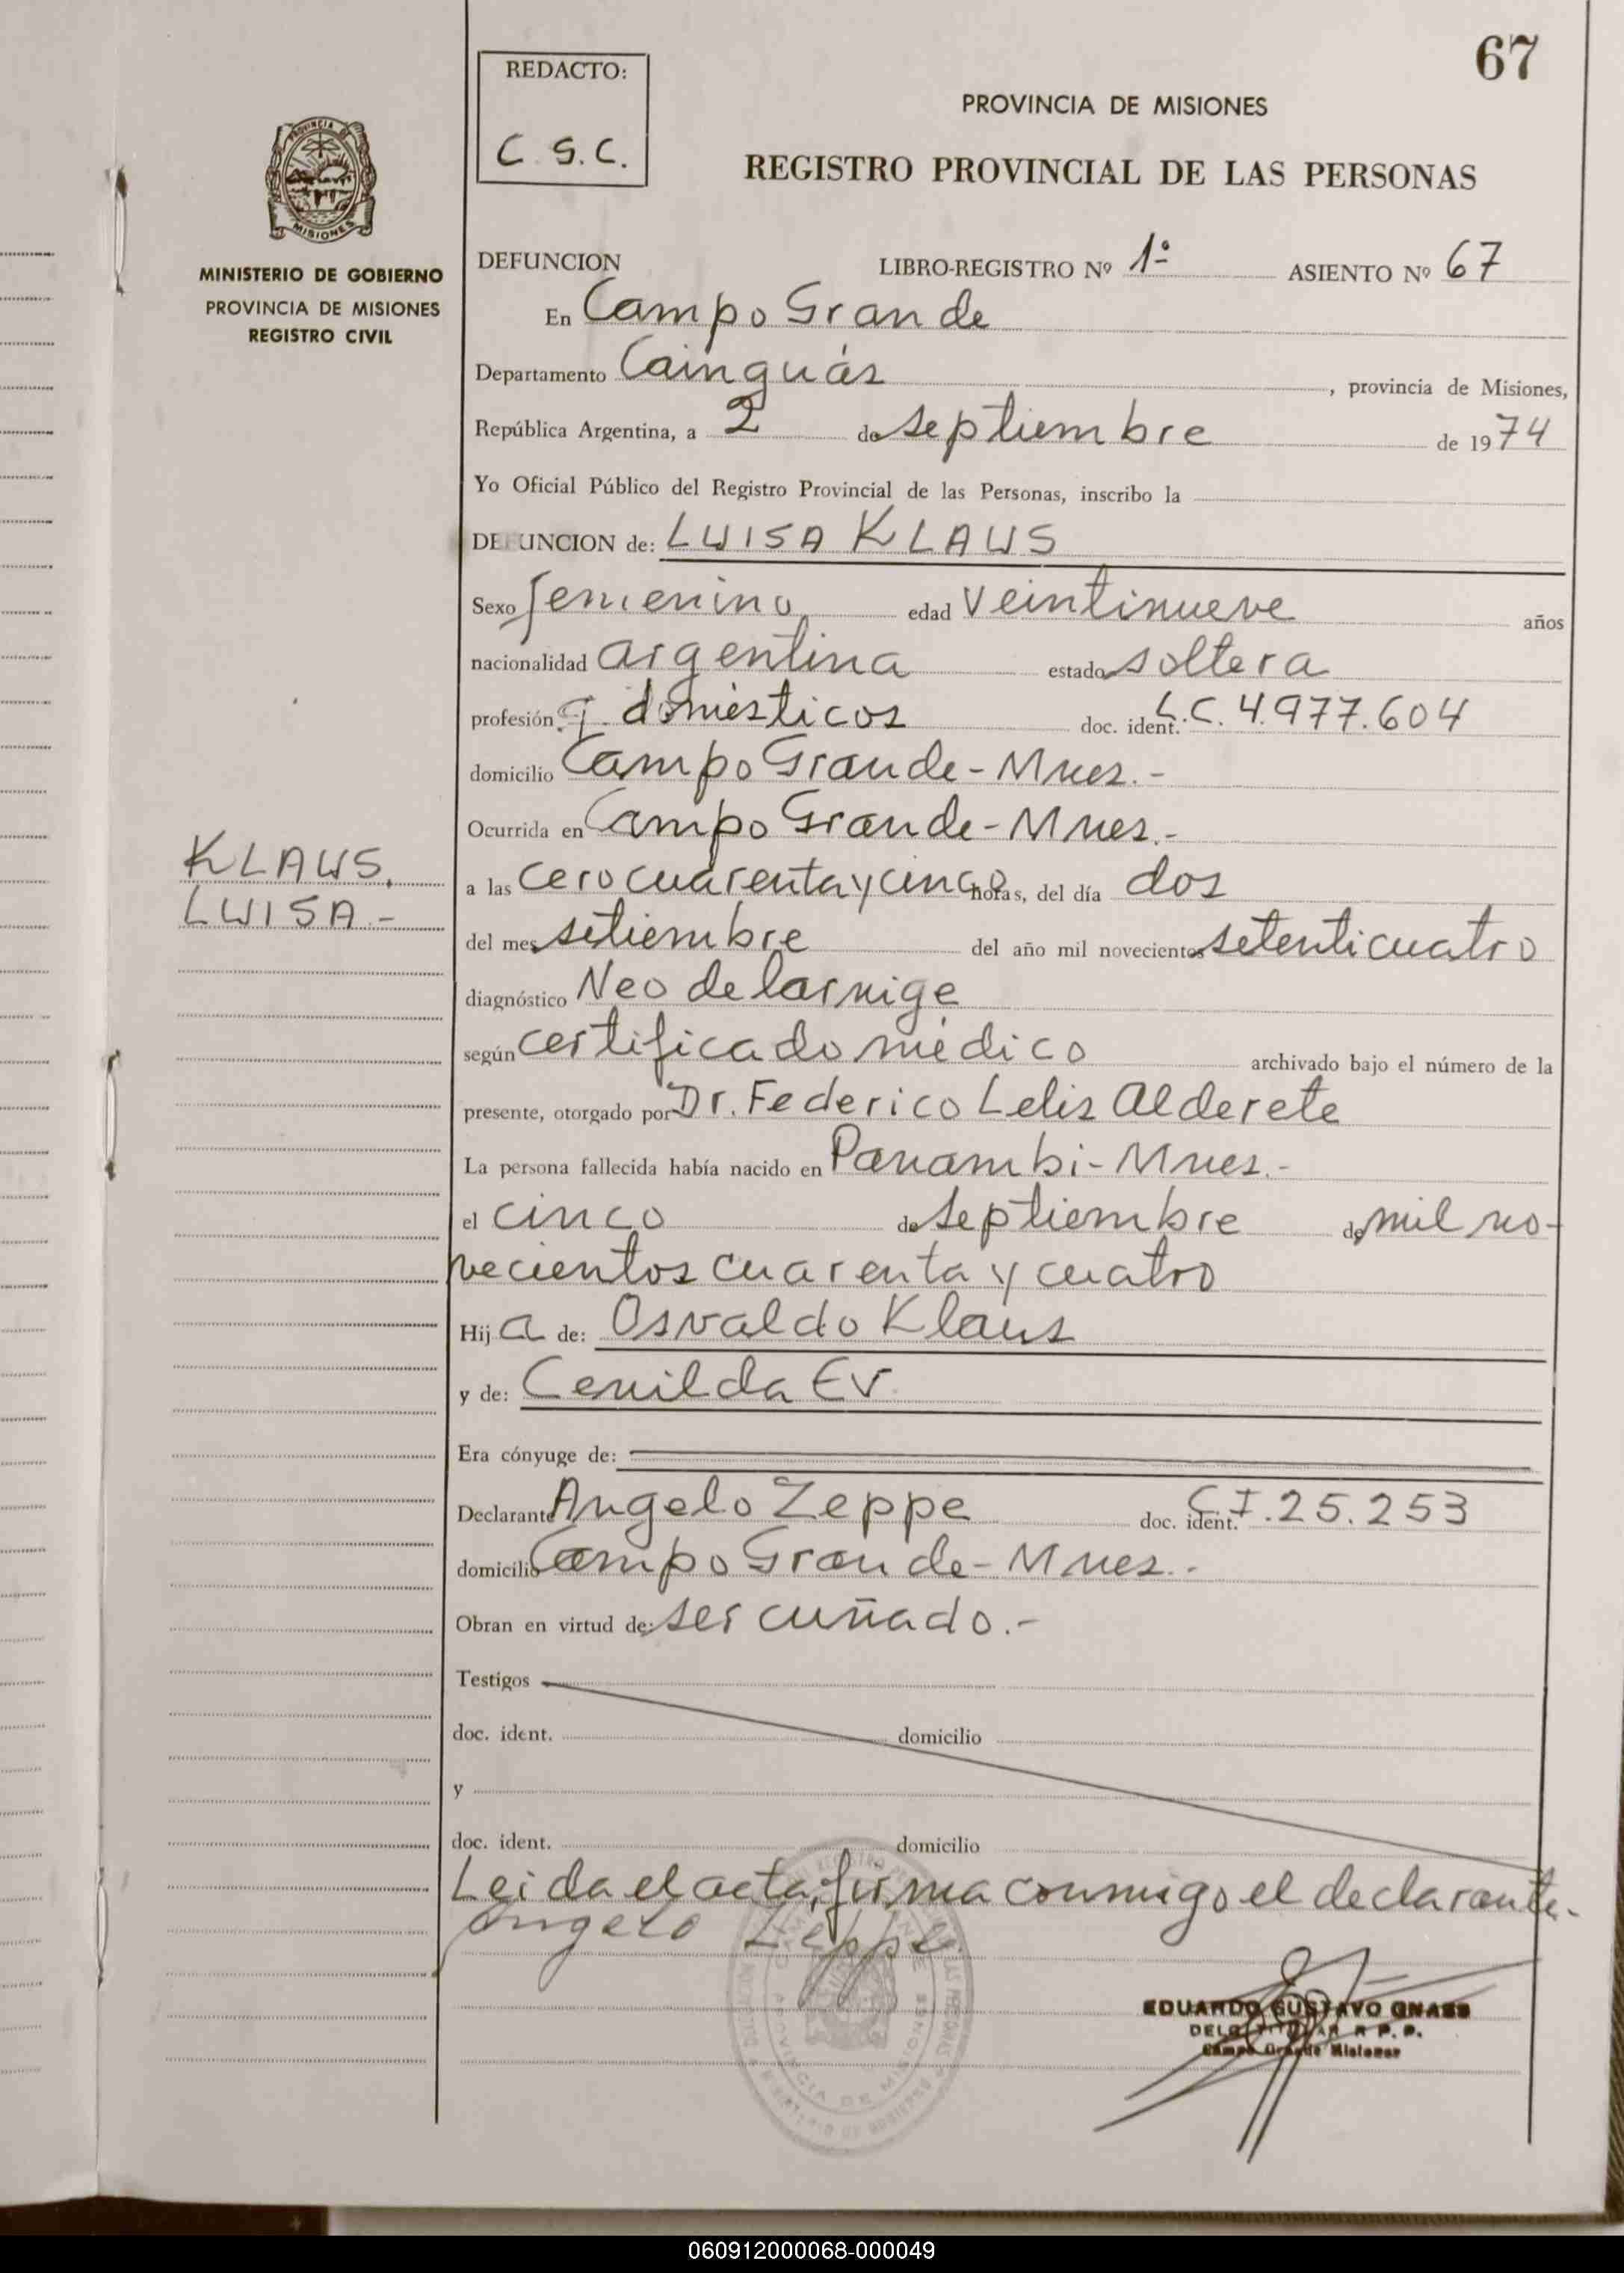 67
REDACTO:
C. S. C.
PROVINCIA DE MISIONES
REGISTRO PROVINCIAL DE LAS PERSONAS
MISIONES
MINISTERIO DE GOBIERNO
PROVINCIA DE MISIONES
REGISTRO CIVIL
DEFUNCION LIBRO-REGISTRO Nº 1º ASIENTO Nº 67
En Campo Grande
Departamento Cainguás, provincia de Misiones,
República Argentina, a 2 de septiembre de 1974
Yo Oficial Público del Registro Provincial de las Personas, inscribo la
DEFUNCION de: LUISA KLAUS
Sexo femenino edad veintinueve años
nacionalidad argentina estado soltera
profesión q. domésticos doc. ident. L.C. 4.977.604
domicilio Campo Grande - Mnes. -
Ocurrida en Campo Grande - Mnes. -
KLAUS,
LUISA -
a las cero cuarenta y cinco horas, del día dos
del mes setiembre del año mil novecientos setenticuatro
diagnóstico Neo de larnige
según certificado médico archivado bajo el número de la
presente, otorgado por Dr. Federico Lelis Alderete
La persona fallecida había nacido en Panambi - Mnes. -
el cinco de septiembre de mil no-
vecientos cuarenta y cuatro
Hija de: Osvaldo Klaus
y de: Cenilda Ev.
Era cónyuge de:
Declarante Angelo Zeppe doc. ident. C.I. 25.253
domicilio Campo Grande - Mnes. -
Obran en virtud de: ser cuñado. -
Testigos
doc. ident. domicilio
y
doc. ident. domicilio
Leida el acta, firma conmigo el declarante. -
Angelo Zeppe
EDUARDO GUSTAVO GNASS
DELG. TITULAR R. P. P.
Campo Grande Misiones
060912000068-000049